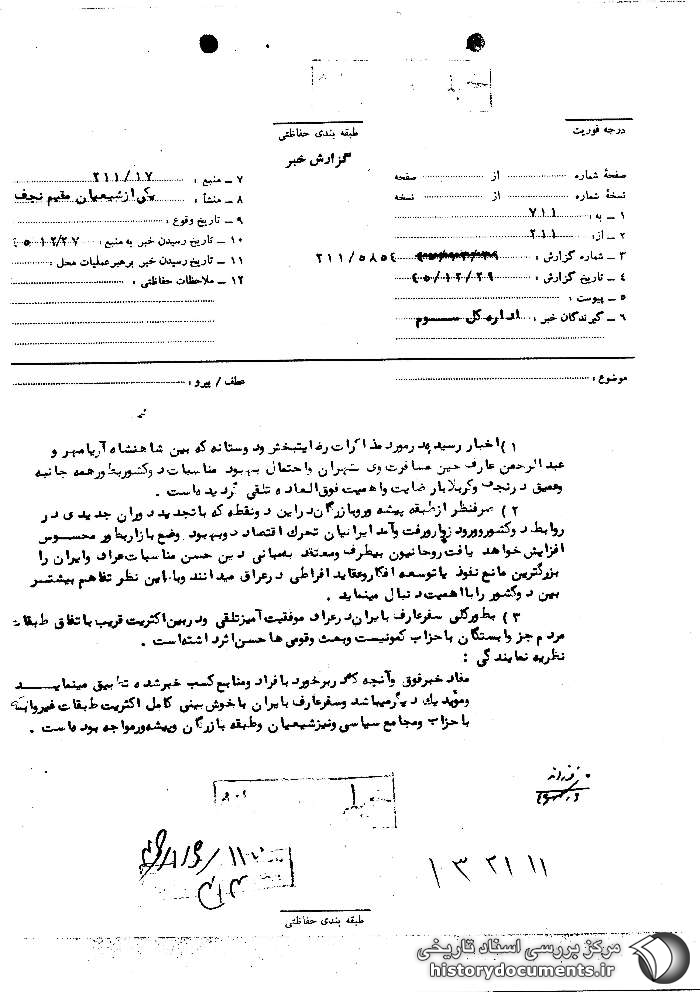 طبقه بندی حفاظتی
درجه فوریت
گزارش خبر
صفحهٔ شماره از صفحه
نسخهٔ شماره از نسخه
۱ ـ به : ۷۱۱
۲ ـ از : ۲۱۱
۳ ـ شماره گزارش : ۲۱۱/۵۸۵۴
۴ ـ تاریخ گزارش : ۴۵/۱۲/۲۹
۵ ـ پیوست :
۶ ـ گیرندگان خبر : اداره کل سوم
۷ ـ منبع : ۲۱۱/۱۷
۸ ـ منشأ : یکی از شیعیان مقیم نجف
۹ ـ تاریخ وقوع :
۱۰ ـ تاریخ رسیدن خبر به منبع : ۴۵/۱۲/۲۷
۱۱ ـ تاریخ رسیدن خبر برهبر عملیات محل :
۱۲ ـ ملاحظات حفاظتی :
موضوع :
عطف / پیرو :
۱) اخبار رسیده در مورد مذاکرات رضایتبخش و دوستانه که بین شاهنشاه آریامهر و
عبدالرحمن عارف حین مسافرت وی بتهران واحتمال بهبود مناسبات دوکشور بطور همه جانبه
وعمیق در نجف وکربلا با رضایت واهمیت فوق العاده تلقی گردیده است .
۲) صرفنظر از طبقه پیشه ور وبازرگان در این دو نقطه که با تجدید دوران جدیدی در
روابط دوکشور و ورود زوار ورفت وآمد ایرانیان تحرک اقتصاد و بهبود وضع بازار بطور محسوس
افزایش خواهد یافت روحانیون بیطرف ومعتقد بمبانی دین حسن مناسبات عراق وایران را
بزرگترین مانع نفوذ یا توسعه افکار وعقاید افراطی در عراق میدانند وبا این نظر تفاهم بیشتر
بین دوکشور را با اهمیت دنبال مینماید .
۳) بطورکلی سفر عارف با ایران در عراق موفقیت آمیز تلقی ودر بین اکثریت قریب باتفاق طبقات
مردم جز وابستگان باحزاب کمونیست وبعث وقومی ها حسن اثر داشته است .
نظریه نمایندگی :
مفاد خبر فوق وآنچه که در برخورد با افراد ومنابع کسب خبر شده تطبیق مینماید
ومؤید یک دیگر میباشد وسفر عارف بایران با خوش بینی کامل اکثریت طبقات غیر وابسته
باحزاب ومجامع سیاسی ونیز شیعیان وطبقه بازرگان وپیشه ور مواجه بوده است .
۱۳۲۱۱۱
طبقه بندی حفاظتی
مرکز بررسی اسناد تاریخی
historydocuments.ir